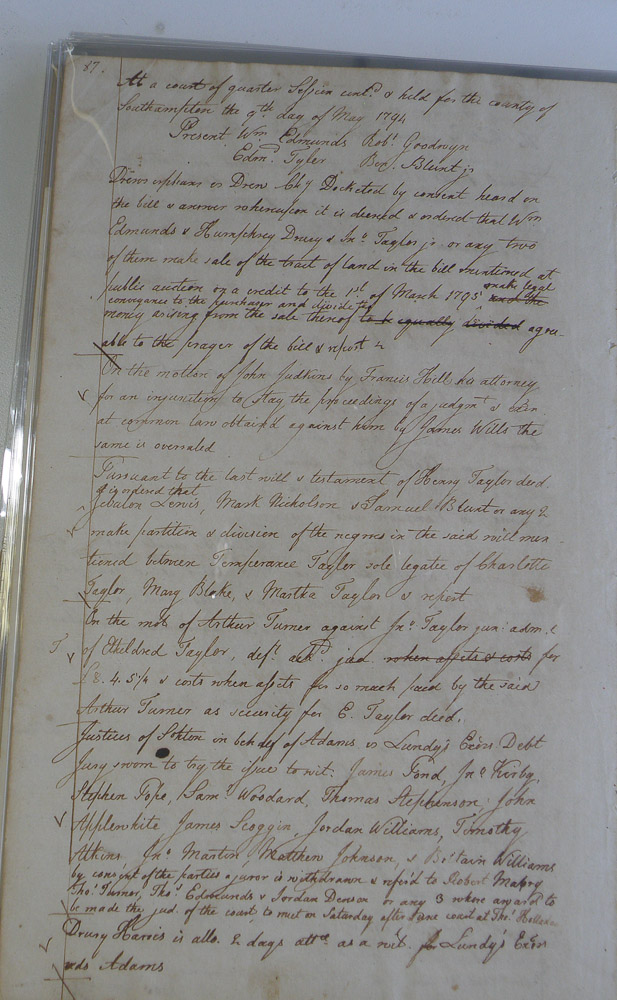 87.
At a court of quarter Session contd. & held for the county of
Southampton the 9th day of May 1794
Present Wm Edmunds Robt Goodwyn
Edm. Tyler Ben. Blunt jr
Drews orphans vs Drew Chy Docketed by consent heard on
the bill & answer whereupon it is decreed & ordered that Wm
Edmunds & Humphrey Drewry & Jno Taylor jr. or any two
of them make sale of the tract of land in the bill mentioned at
public auction on a credit to the 1st of March 1795 make legal and the
conveyance to the purchaser and divide the
money arising from the sale thereof to be equally divided agre-
able to the prayer of the bill & report
On the motion of John Judkins by Francis Hill his attorney
for an injunction to stay the proceedings of a judgmt & exon
at common law obtain'd against him by James Wills the
same is overruled
Pursuant to the last will & testament of Henry Taylor decd.
it is ordered that
Lewis, Mark Nicholson & Samuel Blunt or any 2
make partition & division of the negroes in the said will men-
tioned between Temperance Taylor sole legatee of Charlotte
Taylor, Mary Blake, & Martha Taylor & report
On the mot of Arthur Turner against Jno Taylor jun: adm. &c
T of Etheldred Taylor, deft. ackd jud. when assets & costs for
£8. 4. 5¼ & costs when assets for so much paid by the said
Arthur Turner as security for E. Taylor decd.
Justices of Sohton in behalf of Adams vs Lundy's Exors. Debt
Jury sworn to try the issue to wit: James Pond, Jno Kirby,
Stephen Pope, Saml Woodard, Thomas Stephenson, John
Applewhite James Scoggin, Jordan Williams, Timothy
Atkins Jno Martin, Matthew Johnson, & Britain Williams
by consent of the parties a juror is withdrawn & refer'd to Robert Mabry
Tho: Turner, Thos Edmunds & Jordan Denson or any 3 whose award to
be made the jud. of the court to meet on Saturday after June court at Thos
Drury Harris is allo. 2 days attce as a wit. for Lundy's Exors
ads Adams